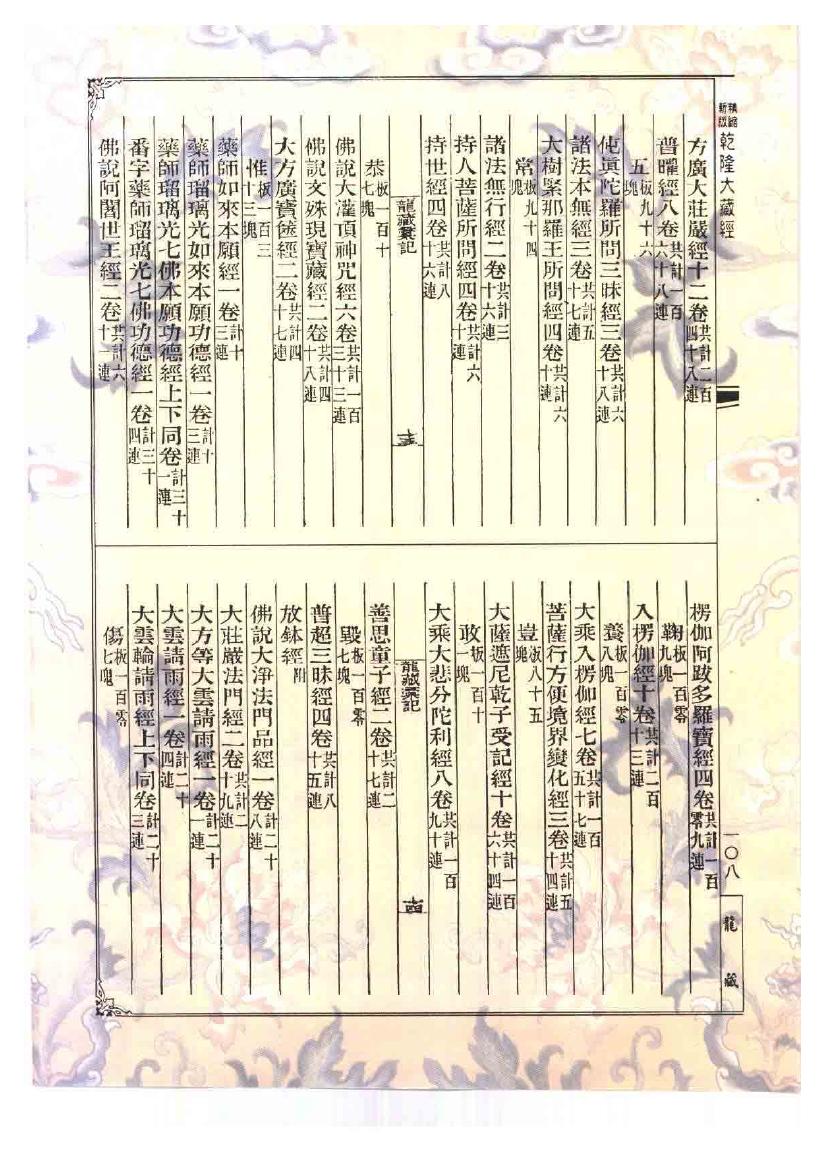 精縮新版 乾隆大藏經
方廣大莊嚴經十二卷 共計二百四十八連
普曜經八卷 共計一百六十八連
五 板九十六塊
伅眞陀羅所問三昧經三卷 共計六十八連
諸法本無經三卷 共計五十七連
大樹緊那羅王所問經四卷 共計六十連
常 板九十四塊
諸法無行經二卷 共計三十六連
持人菩薩所問經四卷 共計六十連
持世經四卷 共計八十六連
龍藏彙記 十三
恭 板一百十七塊
佛說大灌頂神咒經六卷 共計一百三十三連
佛說文殊現寶藏經二卷 共計四十八連
大方廣寶篋經二卷 共計四十七連
惟 板一百三十三塊
藥師如來本願經一卷 計十三連
藥師瑠璃光如來本願功德經一卷 計十三連
藥師瑠璃光七佛本願功德經上下同卷 計三十一連
番字藥師瑠璃光七佛功德經一卷 計三十四連
佛說阿闍世王經二卷 共計六十一連
楞伽阿跋多羅寶經四卷 共計一百零九連
鞠 板一百零九塊
入楞伽經十卷 共計二百十三連
養 板一百零八塊
大乘入楞伽經七卷 共計一百五十七連
菩薩行方便境界變化經三卷 共計五十四連
豈 板八十五塊
大薩遮尼乾子受記經十卷 共計一百六十四連
敢 板一百十一塊
大乘大悲分陀利經八卷 共計一百九十連
龍藏彙記 十四
善思童子經二卷 共計二十七連
毀 板一百零七塊
普超三昧經四卷 共計八十五連
放鉢經 附
佛說大淨法門品經一卷 計二十八連
大莊嚴法門經二卷 共計二十九連
大方等大雲請雨經一卷 計二十一連
大雲請雨經一卷 計二十四連
大雲輪請雨經上下同卷 計二十三連
傷 板一百零七塊
一〇八
龍藏